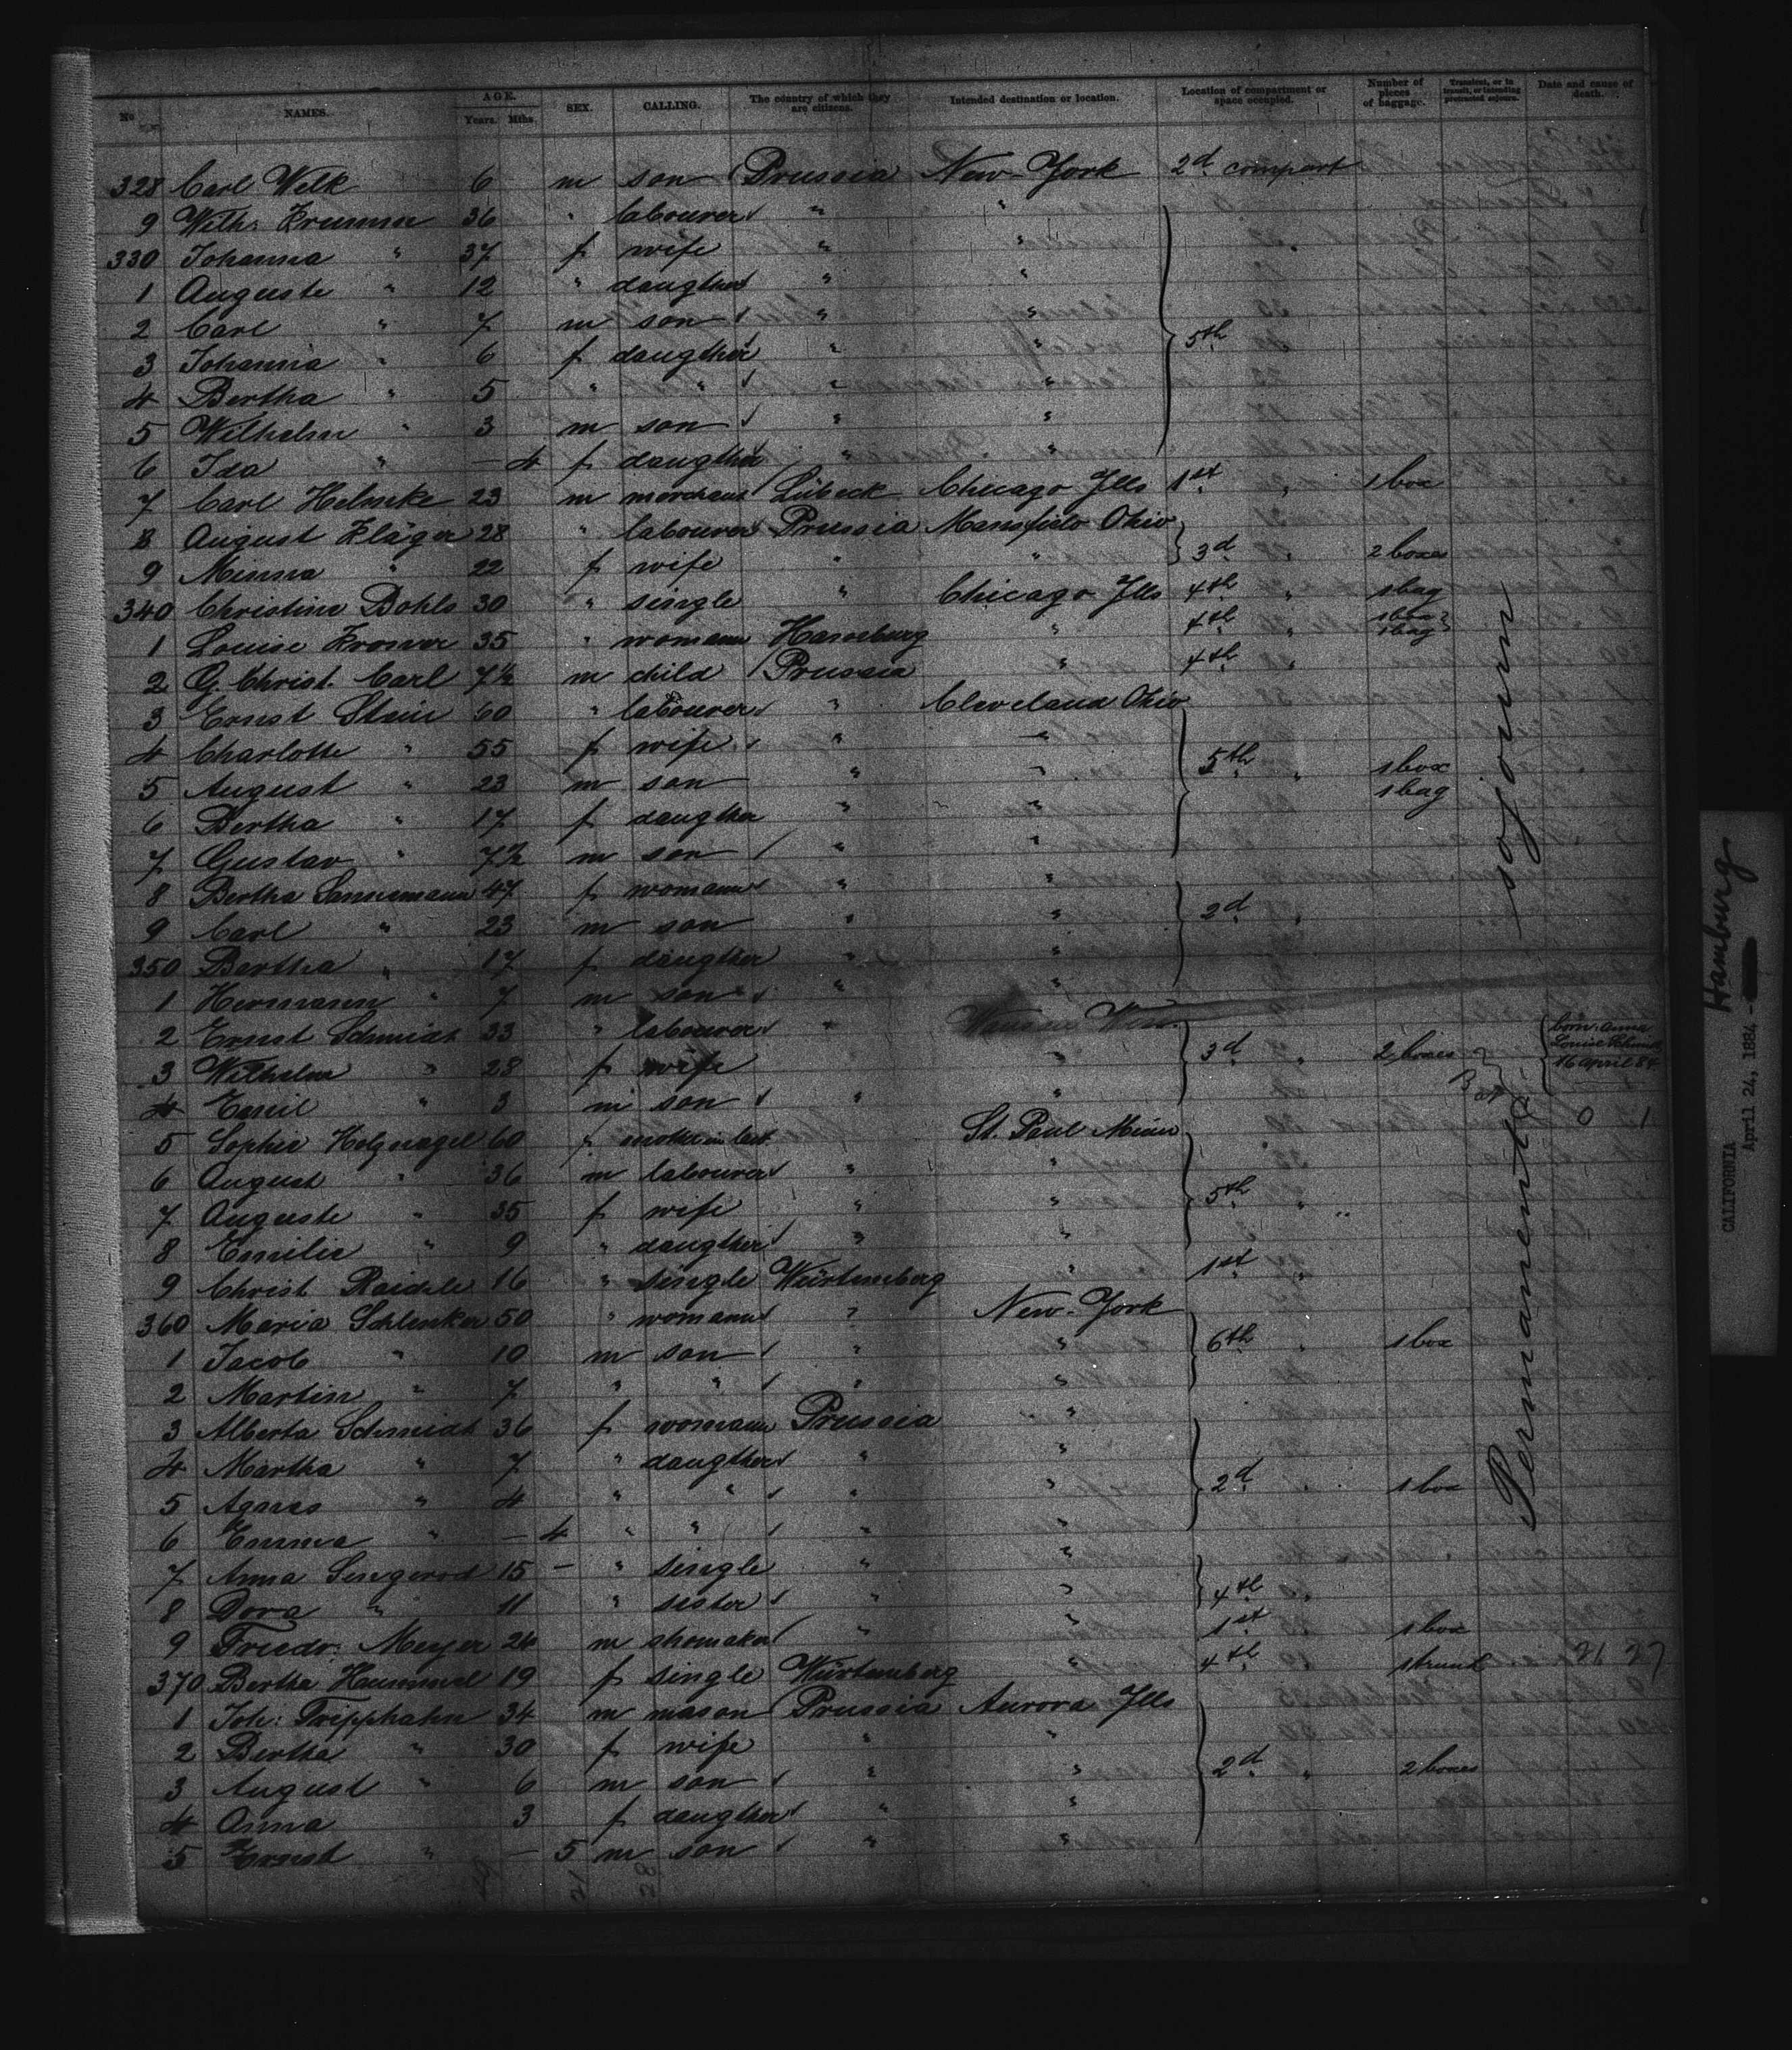 No NAMES. AGE. Years. Mths. SEX. CALLING. The country of which they are citizens. Intended destination or location. Location of compartment or space occupied. Number of pieces of baggage. Transient, or in transit, or intending protracted sojourn. Date and cause of death.
328 Carl Welk 6 m son Prussia New-York 2d compart
9 Wilh: Krumm 36 " labourer " "
330 Johanna " 37 f wife " "
1 Auguste " 12 " daugther " "
2 Carl " 7 m son " "
3 Johanna " 6 f daugther " " 5th
4 Bertha " 5 " " " "
5 Wilhelm " 3 m son " "
6 Ida " – 4 f daugther " "
7 Carl Helmke 23 m merchant Lübeck Chicago Ills 1st " 1 box
8 August Kläger 28 " labourer Prussia Mansfield Ohio
9 Minna " 22 f wife " " 3d " 2 boxes
340 Christine Dohls 30 " single " Chicago Ills 4th " 1 bag
1 Louise 35 " womann Hamburg " 4th " 1 box 1 bag
2 G. Christ. Carl 7½ m child Prussia " 4th "
3 Ernst Stein 60 " labourer " Cleveland Ohio
4 Charlotte " 55 f wife " "
5 August " 23 m son " " 5th " 1 box 1 bag
6 Bertha " 17 f daugther " "
7 Gustav " 7½ m son " "
8 Bertha Sannemann 47 f womann " "
9 Carl " 23 m son " " 2d "
350 Bertha " 17 f daugther " "
1 Hermann " 7 m son " "
2 Ernst Schmidt 33 " labourer "
3 Wilhelm " 28 f wife " 3d " 2 boxes born: Anna Louise Schmidt 16 April 84
4 Emil " 3 m son " "
5 Sophie Holznagel 60 f mother in law St. Paul Minn 0 1
6 August " 36 m labourer " "
7 Auguste " 35 f wife " " 5th "
8 Emilie " 9 " daugther " "
9 Christ. Raidele 16 " single Würtemberg " 1st "
360 Maria Schlenker 50 " womann " New-York
1 Jacob " 10 m son " " 6th " 1 box
2 Martin " 7 " " " "
3 Alberta Schmidt 36 f womann Prussia "
4 Martha " 7 " daugther " "
5 Agnes " 4 " " " " 2d " 1 box
6 Emma " – 4 " " " "
7 Anna Sengerod 15 – " single " "
8 Dora " 11 " sister " " 4th "
9 Friedr: Meyer 24 m shomaker " " 1st 1 box
370 Bertha Hummel 19 f single Würtemberg " 4th " 1 trunk 21 27
1 Joh: Tripphahn 34 m mason Prussia Aurora Ills
2 Bertha " 30 f wife " "
3 August " 6 m son " " 2d " 2 boxes
4 Anna 3 f daugther " "
5 Ernst " – 5 m son " "
Permanent sojourn
CALIFORNIA Hamburg
April 24, 1884 -